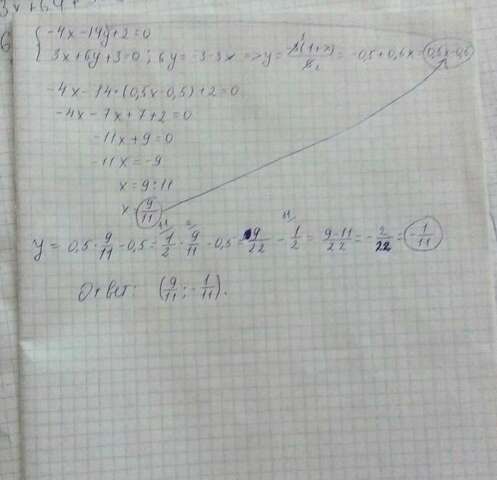 3x+6y+
6
{ -4x-14y+2=0
3x+6y+3=0; 6y=-3-3x => y= -3(1+x)/6₂ = -0,5+0,5x= 0,5x-0,5
-4x-14·(0,5x-0,5)+2=0
-4x-7x+7+2=0
-11x+9=0
-11x=-9
x=9:11
x 9/11
y= 0,5·9/11-0,5= 1/2·9/11-0,5= 9/22 - 1/2 = 9-11/22 = -2/22 = -1/11
Ответ: (9/11; -1/11).